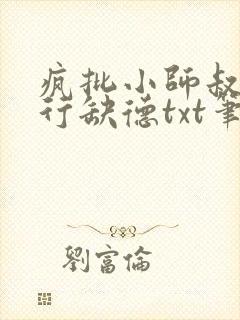 疯批小师叔
行缺德txt笔
劉富倫